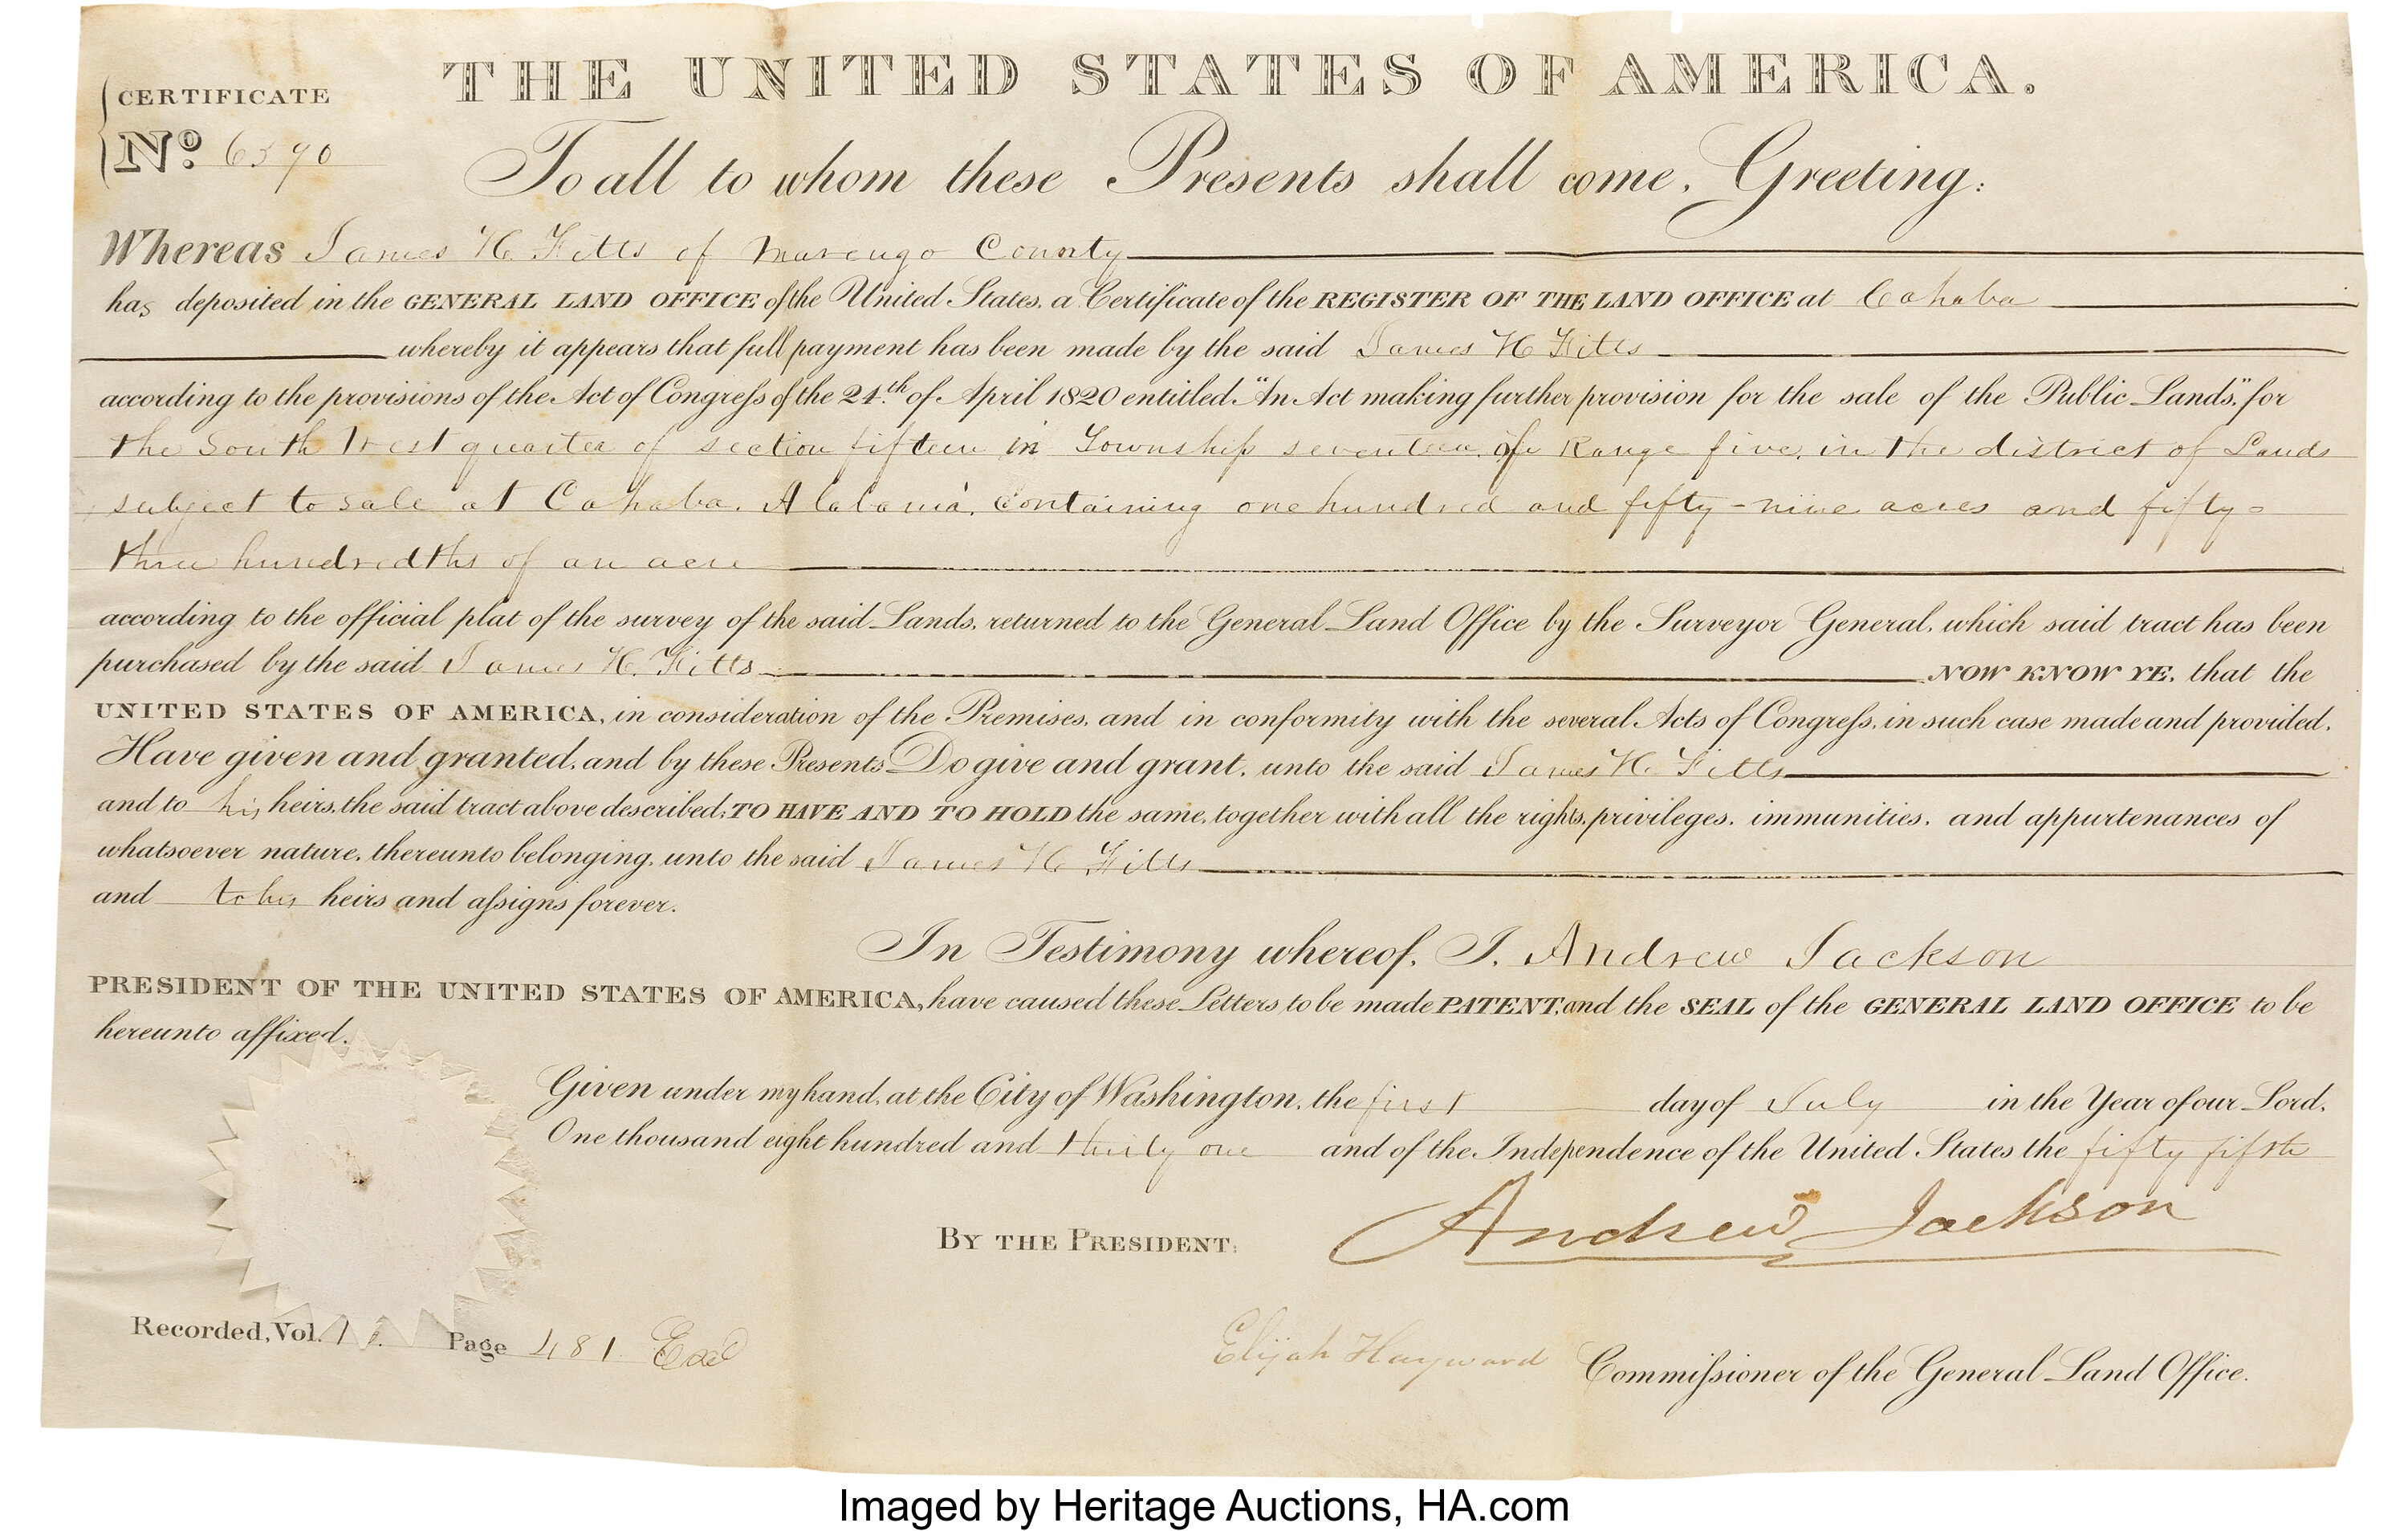 THE UNITED STATES OF AMERICA.
CERTIFICATE
No. 6590
To all to whom these Presents shall come, Greeting:
Whereas James H. Fitts of Marengo County
has deposited in the GENERAL LAND OFFICE of the United States, a Certificate of the REGISTER OF THE LAND OFFICE at Cahaba
whereby it appears that full payment has been made by the said James H Fitts
according to the provisions of the Act of Congreſs of the 24th of April 1820 entitled "An Act making further provision for the sale of the Public Lands," for
the South West quarter of section fifteen in Township seventeen, of Range five, in the district of Lands
subject to sale at Cahaba, Alabama, Containing one hundred and fifty-nine acres and fifty=
three hundredths of an acre
according to the official plat of the survey of the said Lands, returned to the General Land Office by the Surveyor General, which said tract has been
purchased by the said James H. Fitts NOW KNOW YE, that the
UNITED STATES OF AMERICA, in consideration of the Premises, and in conformity with the several Acts of Congreſs, in such case made and provided,
Have given and granted, and by these Presents Do give and grant, unto the said James H. Fitts
and to his heirs, the said tract above described; TO HAVE AND TO HOLD the same, together with all the rights, privileges, immunities, and appurtenances of
whatsoever nature, thereunto belonging, unto the said James H Fitts
and to his heirs and aſsigns forever.
In Testimony whereof, I, Andrew Jackson
PRESIDENT OF THE UNITED STATES OF AMERICA, have caused these Letters to be made PATENT, and the SEAL of the GENERAL LAND OFFICE to be
hereunto affixed.
Given under my hand, at the City of Washington, the first day of July in the Year of our Lord,
One thousand eight hundred and thirty one and of the Independence of the United States the fifty fifth
BY THE PRESIDENT: Andrew Jackson
Recorded, Vol. Page 481
Elijah Hayward Commiſsioner of the General Land Office.
Imaged by Heritage Auctions, HA.com